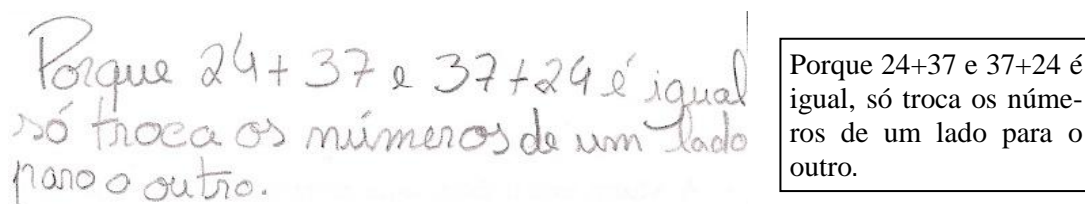 Porque 24+37 e 37+24 é igual
só troca os números de um lado
paro o outro.
Porque 24+37 e 37+24 é
igual, só troca os núme-
ros de um lado para o
outro.